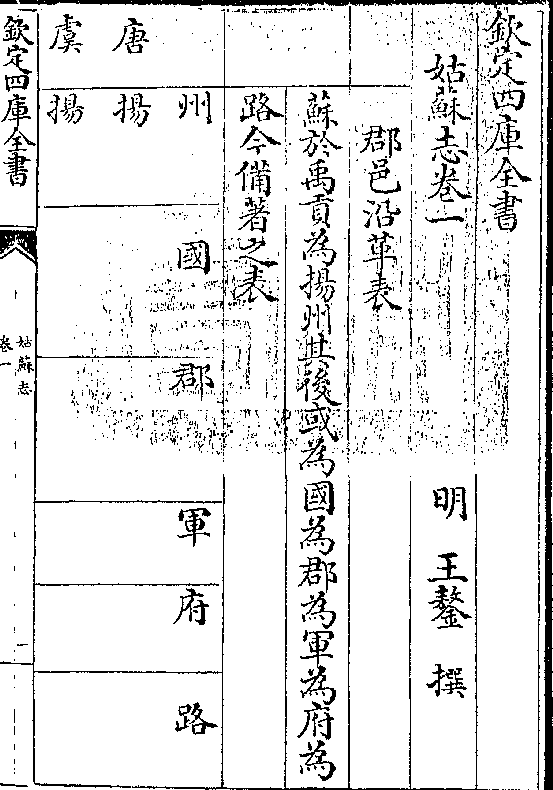 欽定四庫全書
姑蘇志卷一
明 王鏊 撰
郡邑沿革表
蘇於禹貢為揚州其後或為國為郡為軍為府為
路今備著之表
州 國 郡 軍 府 路
唐 揚
虞 揚
欽定四庫全書
姑蘇志
卷一